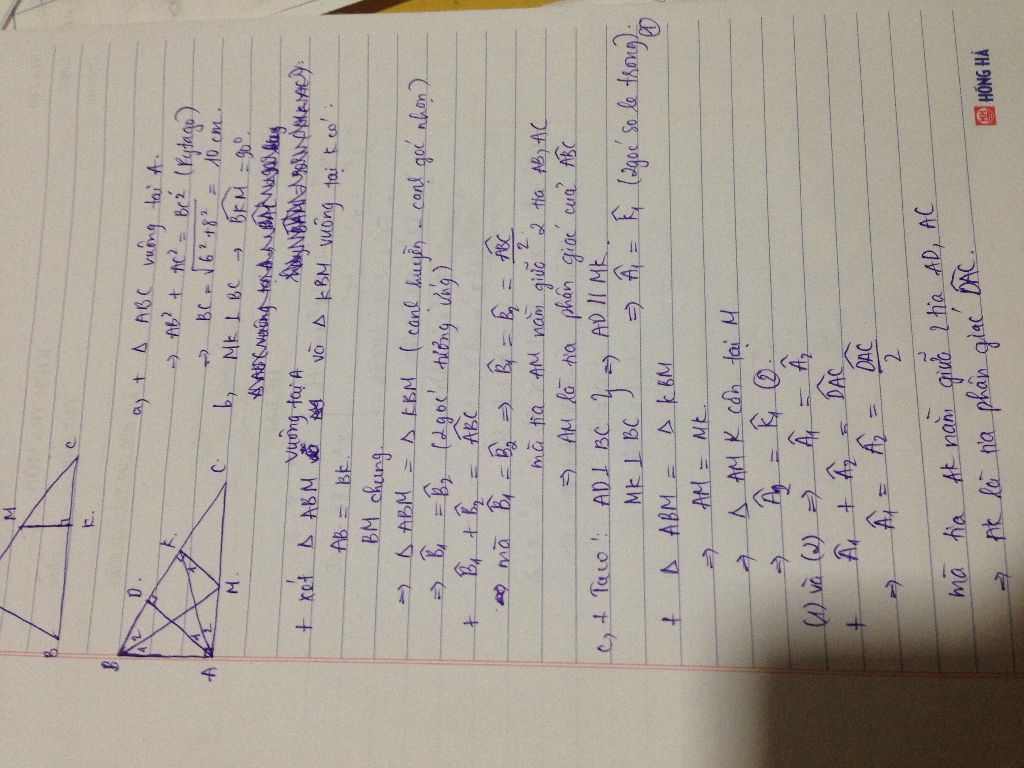 M
B
K.
C
B
D.
K.
A
M.
C.
a, + Δ ABC vuông tại A.
⇒ AB² + AC² = BC² (Pytago)
⇒ BC = √6² + 8² = 10 cm.
b, MK ⊥ BC ⇒ BKM = 90°
+ Xét Δ ABM vuông tại A và Δ KBM vuông tại K có:
AB = BK.
BM chung.
⇒ Δ ABM = Δ KBM (cạnh huyền - cạnh góc nhọn)
⇒ B̂₁ = B̂₂ (2 góc tương ứng)
+ B̂₁ + B̂₂ = ABC
mà B̂₁ = B̂₂ ⇒ B̂₁ = B̂₂ = ABC / 2
mà tia AM nằm giữa 2 tia AB, AC
⇒ AM là tia phân giác của ABC
c, + Ta có: AD ⊥ BC } ⇒ AD // MK.
MK ⊥ BC ⇒ Â₁ = K̂₁ (2 góc so le trong). (1)
+ Δ ABM = Δ KBM
⇒ AM = MK.
⇒ Δ AMK cân tại M
⇒ Â₂ = K̂₁ (2).
(1) và (2) ⇒ Â₁ = Â₂
+ Â₁ + Â₂ = DAC
⇒ Â₁ = Â₂ = DAC / 2
mà tia AK nằm giữa 2 tia AD, AC
⇒ AK là tia phân giác DAC.
HH HỒNG HÀ